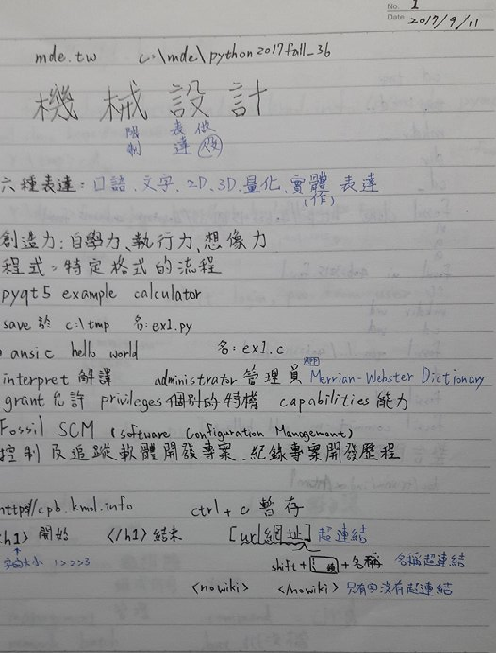 No. 1
Date 2017/9/11
mde.tw c:\mde\python2017fall_3b
機械設計
限制 表達 做
六種表達：口語、文字、2D、3D、量化、實體 表達
(作)
創造力：自學力、執行力、想像力
程式：特定格式的流程
pyqt5 example calculator
save 於 c:\tmp 名：ex1.py
ansic hello world 名：ex1.c
interpret 解譯 administrator 管理員 Merrian-Webster Dictionary
grant 允許 privileges 個別的特權 capabilities 能力
Fossil SCM (software Configuration Management)
控制及追蹤軟體開發專案、紀錄專案開發歷程
http://cpb.kmol.info ctrl + c 暫存
<h1> 開始 </h1> 結束 [url網址] 超連結
字的大小 1>2>3 shift + + 名稱 名稱超連結
<nowiki> </nowiki> 只有中沒有超連結